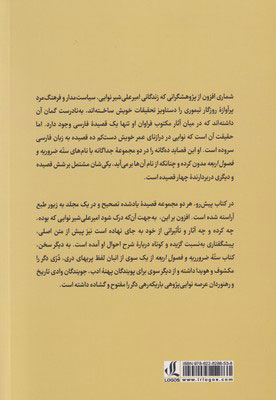 شماری افزون از پژوهشگرانی که زندگانی امیرعلی‌شیر نوایی، سیاست‌مدار و فرهنگ‌مرد
پرآوازهٔ روزگار تیموری را دستاویز تحقیقات خویش ساخته‌اند، به‌نادرست گمان آن
داشته‌اند که در میان آثار مکتوب فراوان او تنها یک قصیدهٔ فارسی وجود دارد. اما
حقیقت آن است که نوایی در درازنای عمر خویش دست‌کم ده قصیده به زبان فارسی
سروده است. او این قصاید ده‌گانه را در دو مجموعهٔ جداگانه با نام‌های ستهٔ ضروریه و
فصول اربعه مدون کرده و چنانکه از نام آن‌ها بر می‌آید، یکی‌شان مشتمل بر شش قصیده
و دیگری دربردارندهٔ چهار قصیده است.
در کتاب پیش‌رو، هر دو مجموعه قصیدهٔ یادشده تصحیح و در یک مجلد به زیور طبع
آراسته شده است. افزون بر این، به‌جهت آن‌که درک شود امیرعلی‌شیر نوایی که بوده،
چه کرده و چه آثار و تأثیراتی از خود به جای نهاده است نیز پیش از متن اصلی،
پیشگفتاری به‌نسبت گزیده و کوتاه دربارهٔ شرح احوال او آمده است. به دیگر سخن،
کتاب ستهٔ ضروریه و فصول اربعه از یک سوی از انبان لفظ پربهای دری، دُرّی دگر را
مکشوف و هویدا داشته و از دیگر سوی برای پویندگان پهنهٔ ادب، جویندگان وادی تاریخ و
رهنوردان عرصه نوایی‌پژوهی باریکه‌رهی دگر را مفتوح و گشاده داشته است.
ISBN: 978-622-8286-53-8
LOGOS
www.irlogos.com